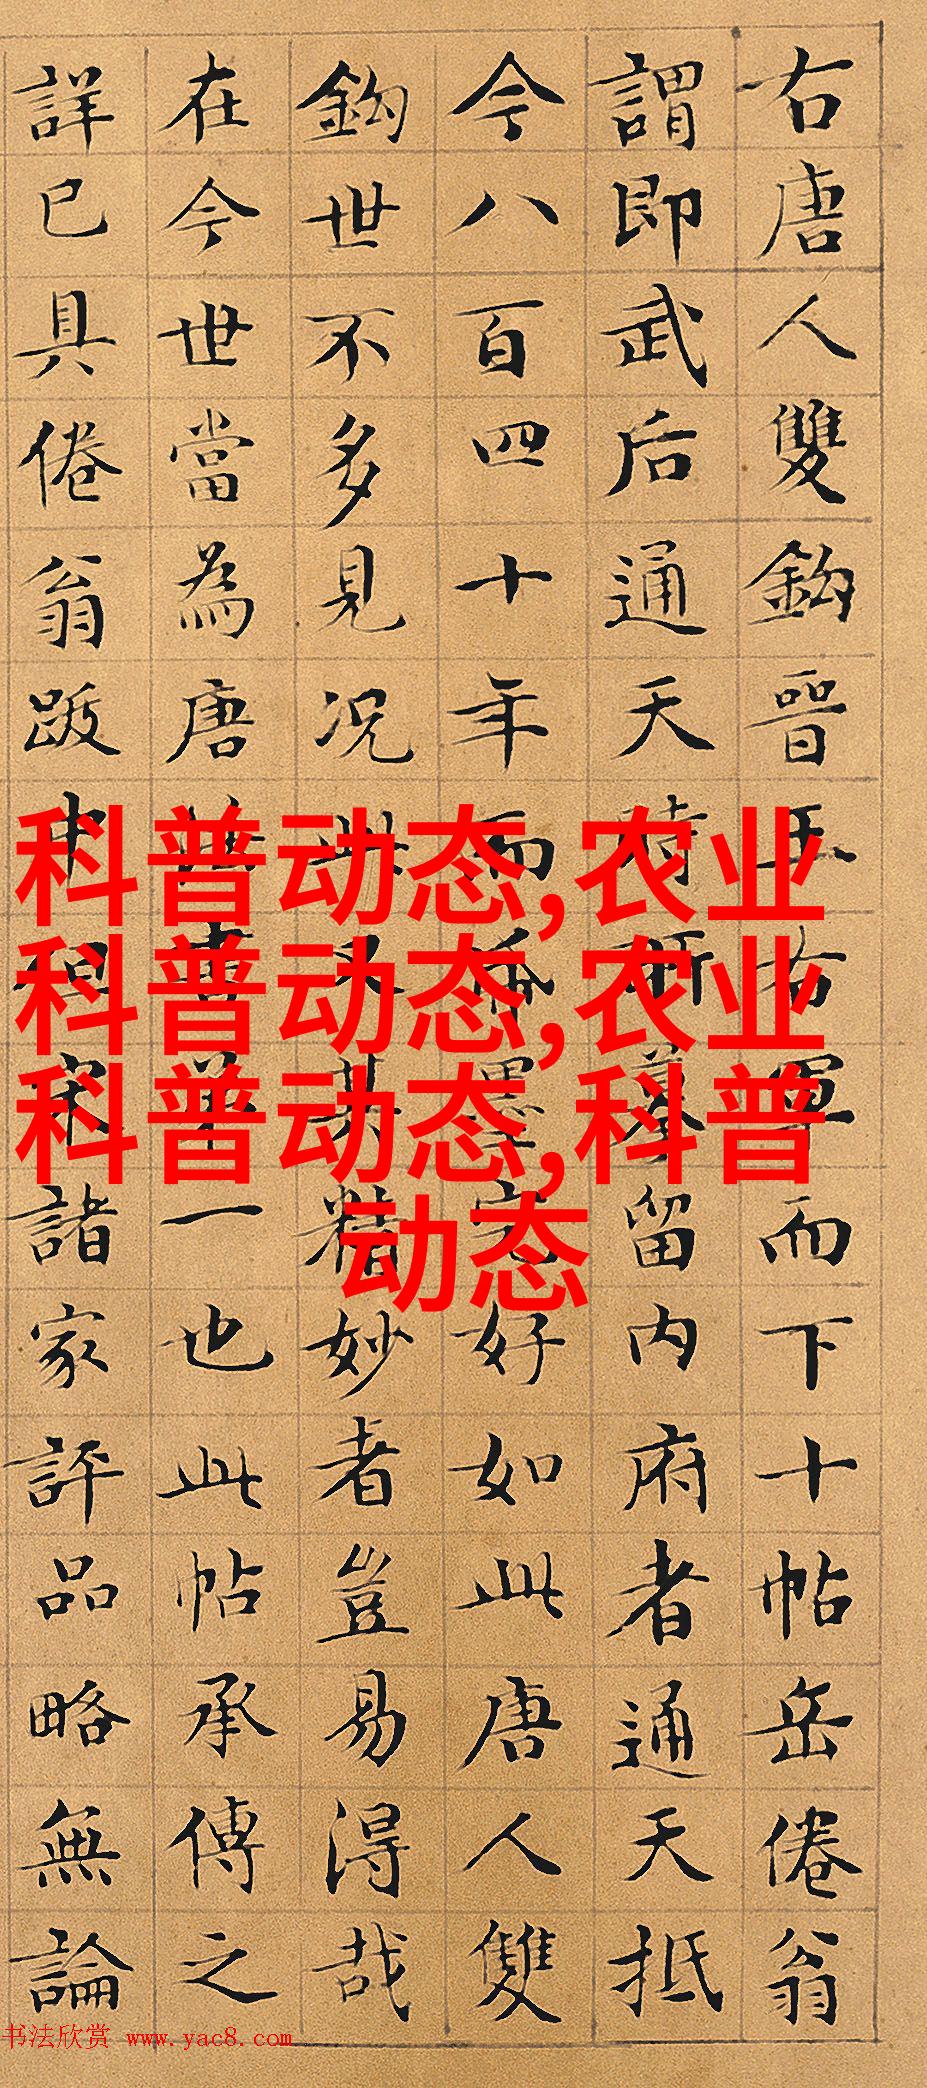 右唐人雙鈎晉王右軍而下十帖岳倦翁
謂即武后通天時所摹留内府者通天抵
今八百四十年而紙墨完好如此唐人雙
鈎世不多見况此又其精妙者豈易得哉
在今世當為唐法書第一也此帖承傳之
詳已具倦翁跋中但宋諸家評品略無論
科普动态,农业
科普动态,农业
科普动态,科普
动态
书法欣赏 www.yac8.com